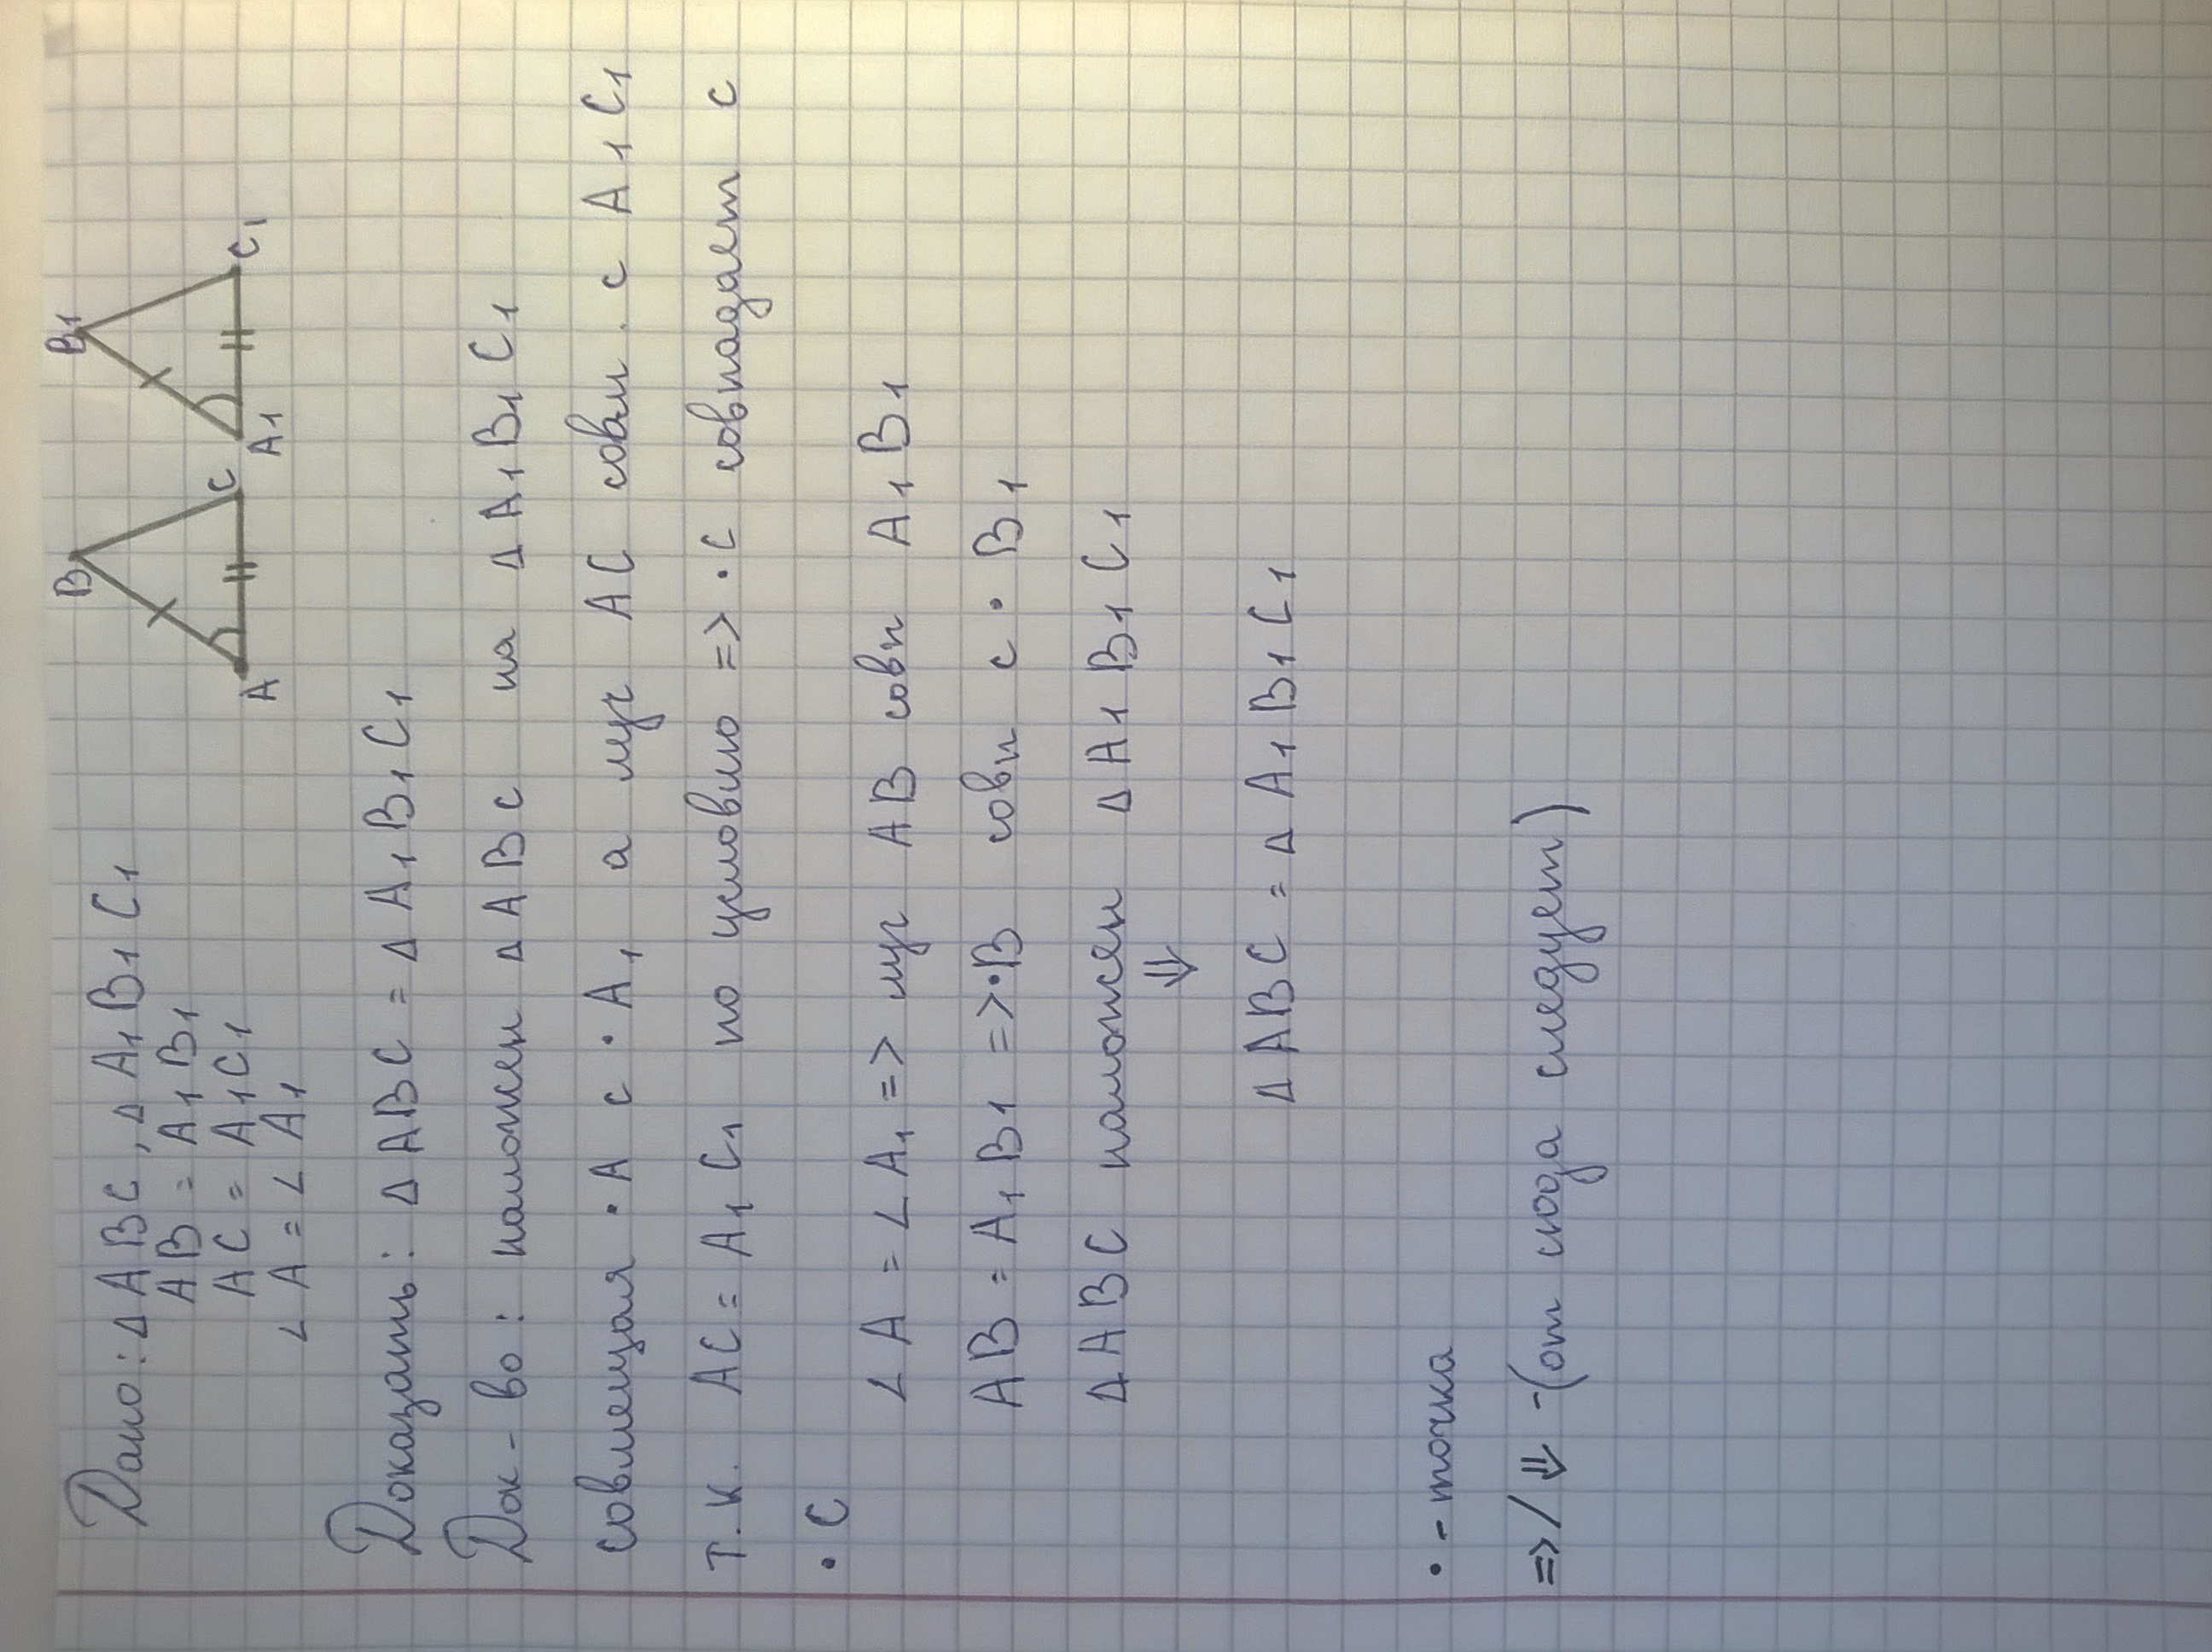 Дано: Δ ABC, Δ A1B1C1
AB = A1B1
AC = A1C1
∠A = ∠A1
B
A
C
B1
A1
C1
Доказать: Δ ABC = Δ A1B1C1
Док-во: наложен Δ ABC на Δ A1B1C1
совмещая •A с •A1, а луч AC совм. с A1C1
т.к. AC = A1C1 по условию => •C совпадает с
•C
∠A = ∠A1 => луч AB совп A1B1
AB = A1B1 => •B совп с •B1
ΔABC наложен ΔA1B1C1
⇓
ΔABC = ΔA1B1C1
• - точка
=> / ⇓ - (от сюда следует)